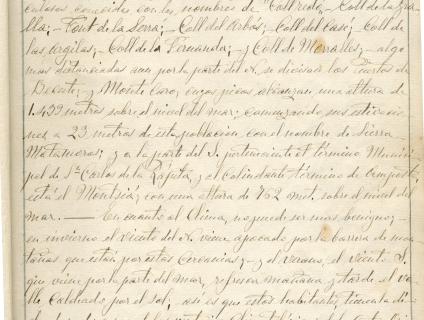 conocidos con los nombres de "Coll redo, - Coll de la Gra-
lla; - Font de la Serra; - Coll del Arbós; - Coll del Casó; - Coll de
las Argilas; - Coll de la Fernanda; - y Coll de Moralles; - algo
mas distanciadas aun por la parte del N. se divisan los Puertos de
y Monte Caro, cuyos picos alcanzan, una altura de
1.439 metros sobre el nivel del mar; comenzando sus
nes a 23 metros de esta población con el nombre de Sierra
Matamoros; y a la parte del S. perteneciente al término Munici-
pal de Sn Carlos de la Rápita, y el colindante término de Amposta
está el Montsiá; con una altura de 762 mets. sobre el nivel del
mar. — En cuanto al Clima, no puede ser mas benigno; -
en invierno el viento del N. viene apocado por la barrera de mon-
tañas que están por estas cercanias; - y el verano, el viento S.
que viene por la parte del mar, refresca mañana y tarde el va-
lle caldeado por el sol; asi es que estos habitantes,